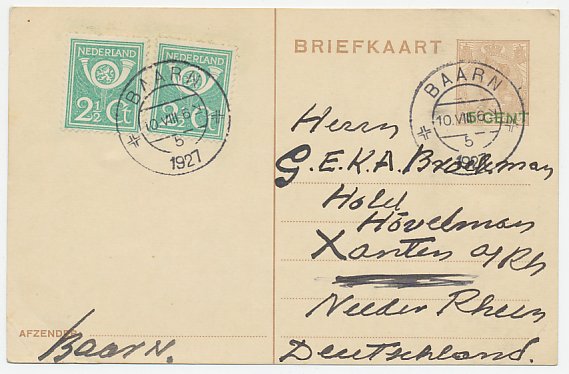 BRIEFKAART
NEDERLAND
2½ Ct
NEDERLAND
2½ Ct
BAARN
10.VIII 6
5
1927
BAARN
10.VIII 6
5
1927
5 CENT
Herrn
G.E.K.A. Broekman
Hotel
Hövelman
Xanten a/Rh
Nieder Rhein
Deutschland.
AFZENDER
Baarn.